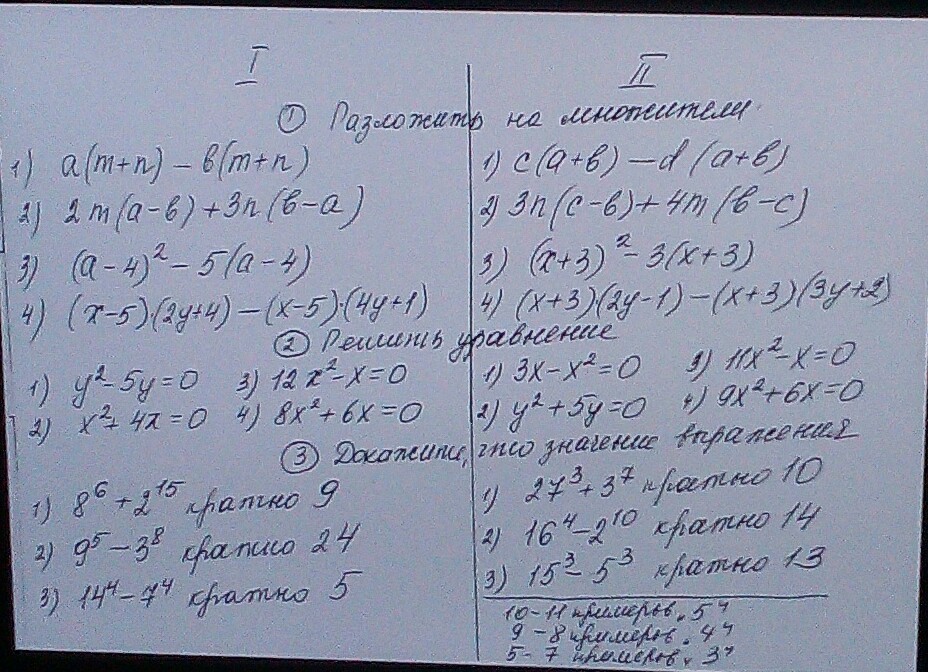 I
II
① Разложить на множители.
1) a(m+n) – в(m+n)
2) 2m(a-в)+3n(в-a)
3) (a-4)² – 5(a-4)
4) (x-5)·(2y+4) – (x-5)·(4y+1)
1) c(a+в) – d(a+в)
2) 3n(c-в)+4m(в-c)
3) (x+3)² – 3(x+3)
4) (x+3)(2y-1) – (x+3)(3y+2)
② Решить уравнение
1) y²-5y=0 3) 12x²-x=0
2) x²+4x=0 4) 8x²+6x=0
1) 3x-x²=0 3) 11x²-x=0
2) y²+5y=0 4) 9x²+6x=0
③ Докажите, что значение выражения
1) 8⁶+2¹⁵ кратно 9
2) 9⁵-3⁸ кратно 24
3) 14⁴-7⁴ кратно 5
1) 27³+3⁷ кратно 10
2) 16⁴-2¹⁰ кратно 14
3) 15³-5³ кратно 13
10-11 примеров „5"
9-8 примеров „4"
5-7 примеров „3"